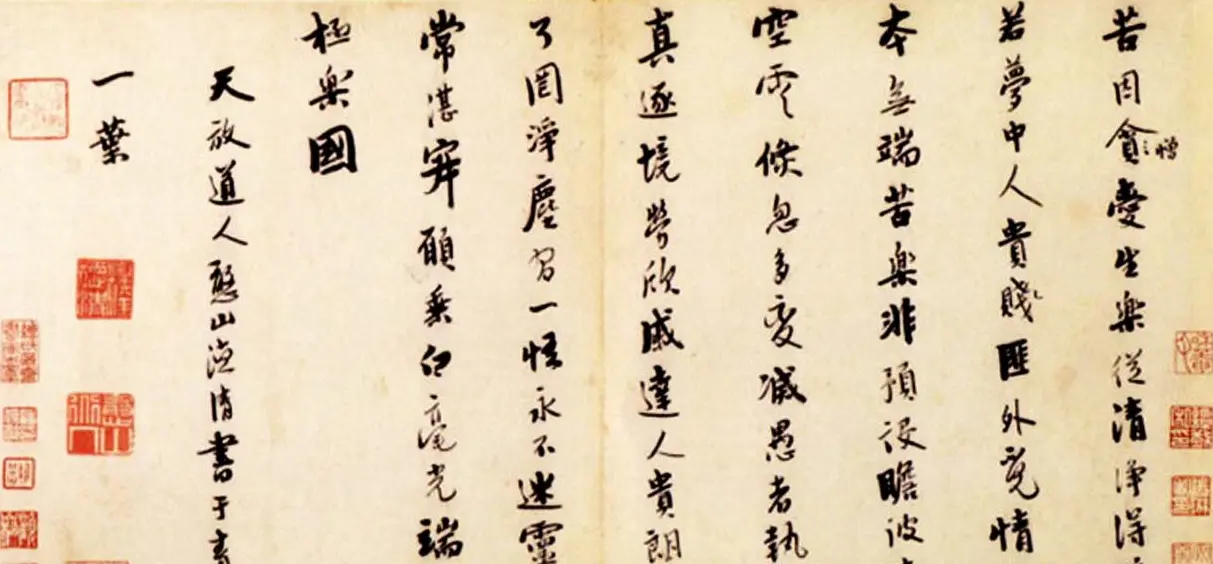 苦因貪憎愛生樂從清淨得
若夢中人貴賤匪外覓情
本無端苦樂非預設瞻彼
空雲倏忽多變滅愚者執
真逐境勞欣戚達人貴朗
了罔淨塵習一悟永不迷靈
常湛寂願乘白毫光端
極樂國
天放道人憨山德清書于
一葉